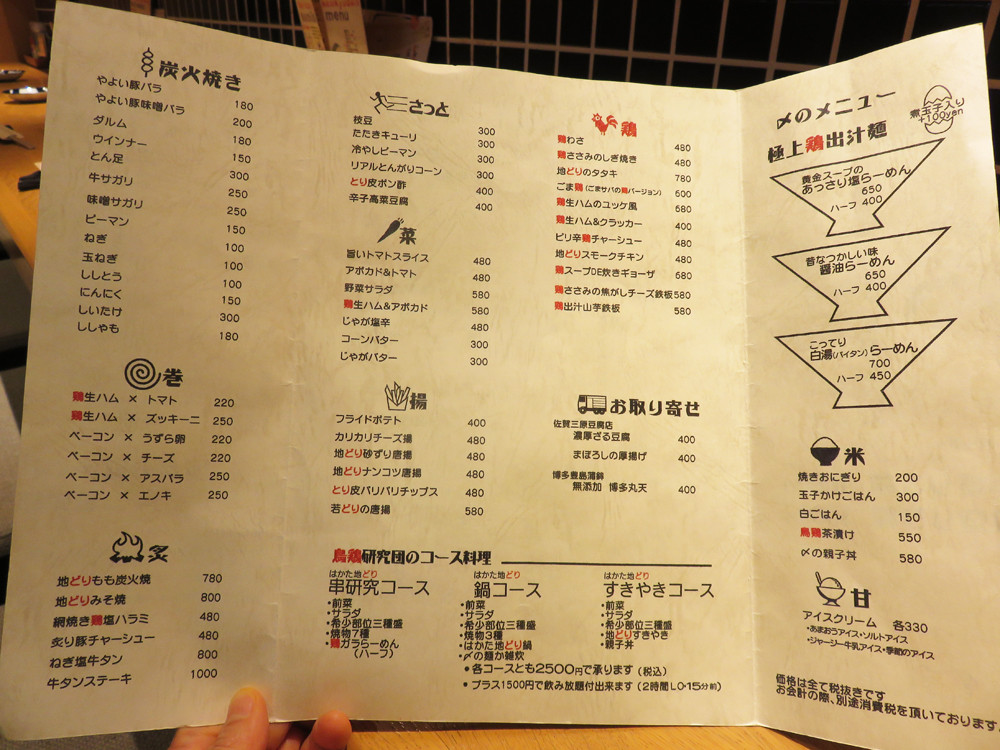 炭火焼き
やよい豚バラ 180
やよい豚味噌バラ 200
ダルム 180
ウインナー 150
とん足 300
牛サガリ 250
味噌サガリ 250
ピーマン 150
ねぎ 100
玉ねぎ 100
ししとう 150
にんにく 300
しいたけ 180
ししゃも
巻
鶏生ハム × トマト 220
鶏生ハム × ズッキーニ 250
ベーコン × うずら卵 220
ベーコン × チーズ 220
ベーコン × アスパラ 250
ベーコン × エノキ 250
炙
地どりもも炭火焼 780
地どりみそ焼 800
網焼き鶏塩ハラミ 480
炙り豚チャーシュー 480
ねぎ塩牛タン 800
牛タンステーキ 1000
さっと
枝豆 300
たたきキューリ 300
冷やしピーマン 300
リアルとんがりコーン 300
とり皮ポン酢 400
辛子高菜豆腐 400
菜
旨いトマトスライス 480
アボカド&トマト 480
野菜サラダ 580
鶏生ハム&アボカド 580
じゃが塩辛 480
コーンバター 300
じゃがバター 300
揚
フライドポテト 400
カリカリチーズ揚 480
地どり砂ずり唐揚 480
地どりナンコツ唐揚 480
とり皮パリパリチップス 480
若どりの唐揚 580
鶏
鶏わさ 480
鶏ささみのしぎ焼き 480
地どりのタタキ 780
ごま鶏(ごまサバの鶏バージョン) 600
鶏生ハムのユッケ風 680
鶏生ハム&クラッカー 480
ピリ辛鶏チャーシュー 480
地どりスモークチキン 480
鶏スープDE炊きギョーザ 680
鶏ささみの焦がしチーズ鉄板 580
鶏出汁山芋鉄板 580
お取り寄せ
佐賀三原豆腐店
濃厚ざる豆腐 400
まぼろしの厚揚げ 400
博多豊島蒲鉾
無添加 博多丸天 400
鳥鶏研究団のコース料理
はかた地どり
串研究コース
・前菜
・サラダ
・希少部位三種盛
・焼物7種
・鶏ガラらーめん
(ハーフ)
はかた地どり
鍋コース
・前菜
・サラダ
・希少部位三種盛
・焼物3種
・はかた地どり鍋
・〆の麺か雑炊
はかた地どり
すきやきコース
・前菜
・サラダ
・希少部位三種盛
・地どりすきやき
・親子丼
・各コースとも2500円で承ります(税込)
・プラス1500円で飲み放題付出来ます(2時間LO・15分前)
〆のメニュー
煮玉子入り
+100yen
極上鶏出汁麺
黄金スープの
あっさり塩らーめん
650
ハーフ 400
昔なつかしい味
醤油らーめん
650
ハーフ 400
こってり
白湯(パイタン)らーめん
700
ハーフ 450
米
焼きおにぎり 200
玉子かけごはん 300
白ごはん 150
鳥鶏茶漬け 550
〆の親子丼 580
甘
アイスクリーム 各330
・あまおうアイス・ソルトアイス
・ジャージー牛乳アイス・季節のアイス
価格は全て税抜きです
お会計の際、別途消費税を頂いております。
menu